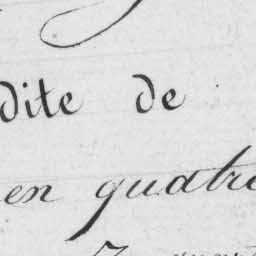 dite de
en quatre